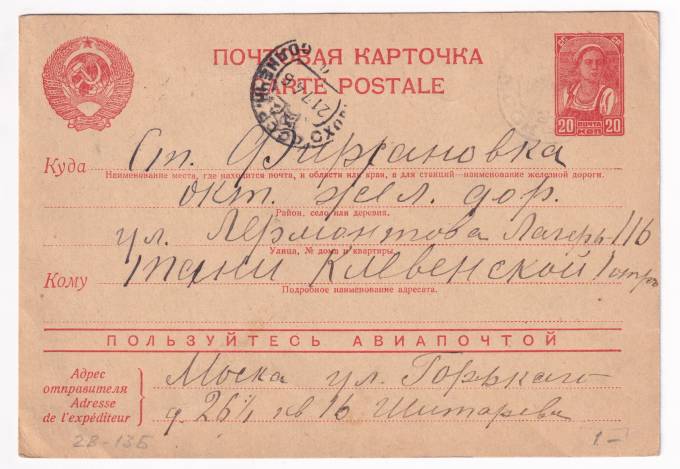 ПОЧТОВАЯ КАРТОЧКА
CARTE POSTALE
20 ПОЧТА 20
КОП
Куда Ст. Фирсановка
Наименование места, где находится почта, и области или края, а для станций—наименование железной дороги.
окт. жел. дор.
Район, село или деревня.
ул. Лермонтова Лагерь 116
Улица, № дома и квартиры.
Кому Тани Клевенской 1 отр.
Подробное наименование адресата.
ПОЛЬЗУЙТЕСЬ АВИАПОЧТОЙ
Адрес отправителя
Adresse de l'expéditeur
Моска ул. Горькаго
д. 26/1 кв 16 Шитарева
2В-13Б
1 –